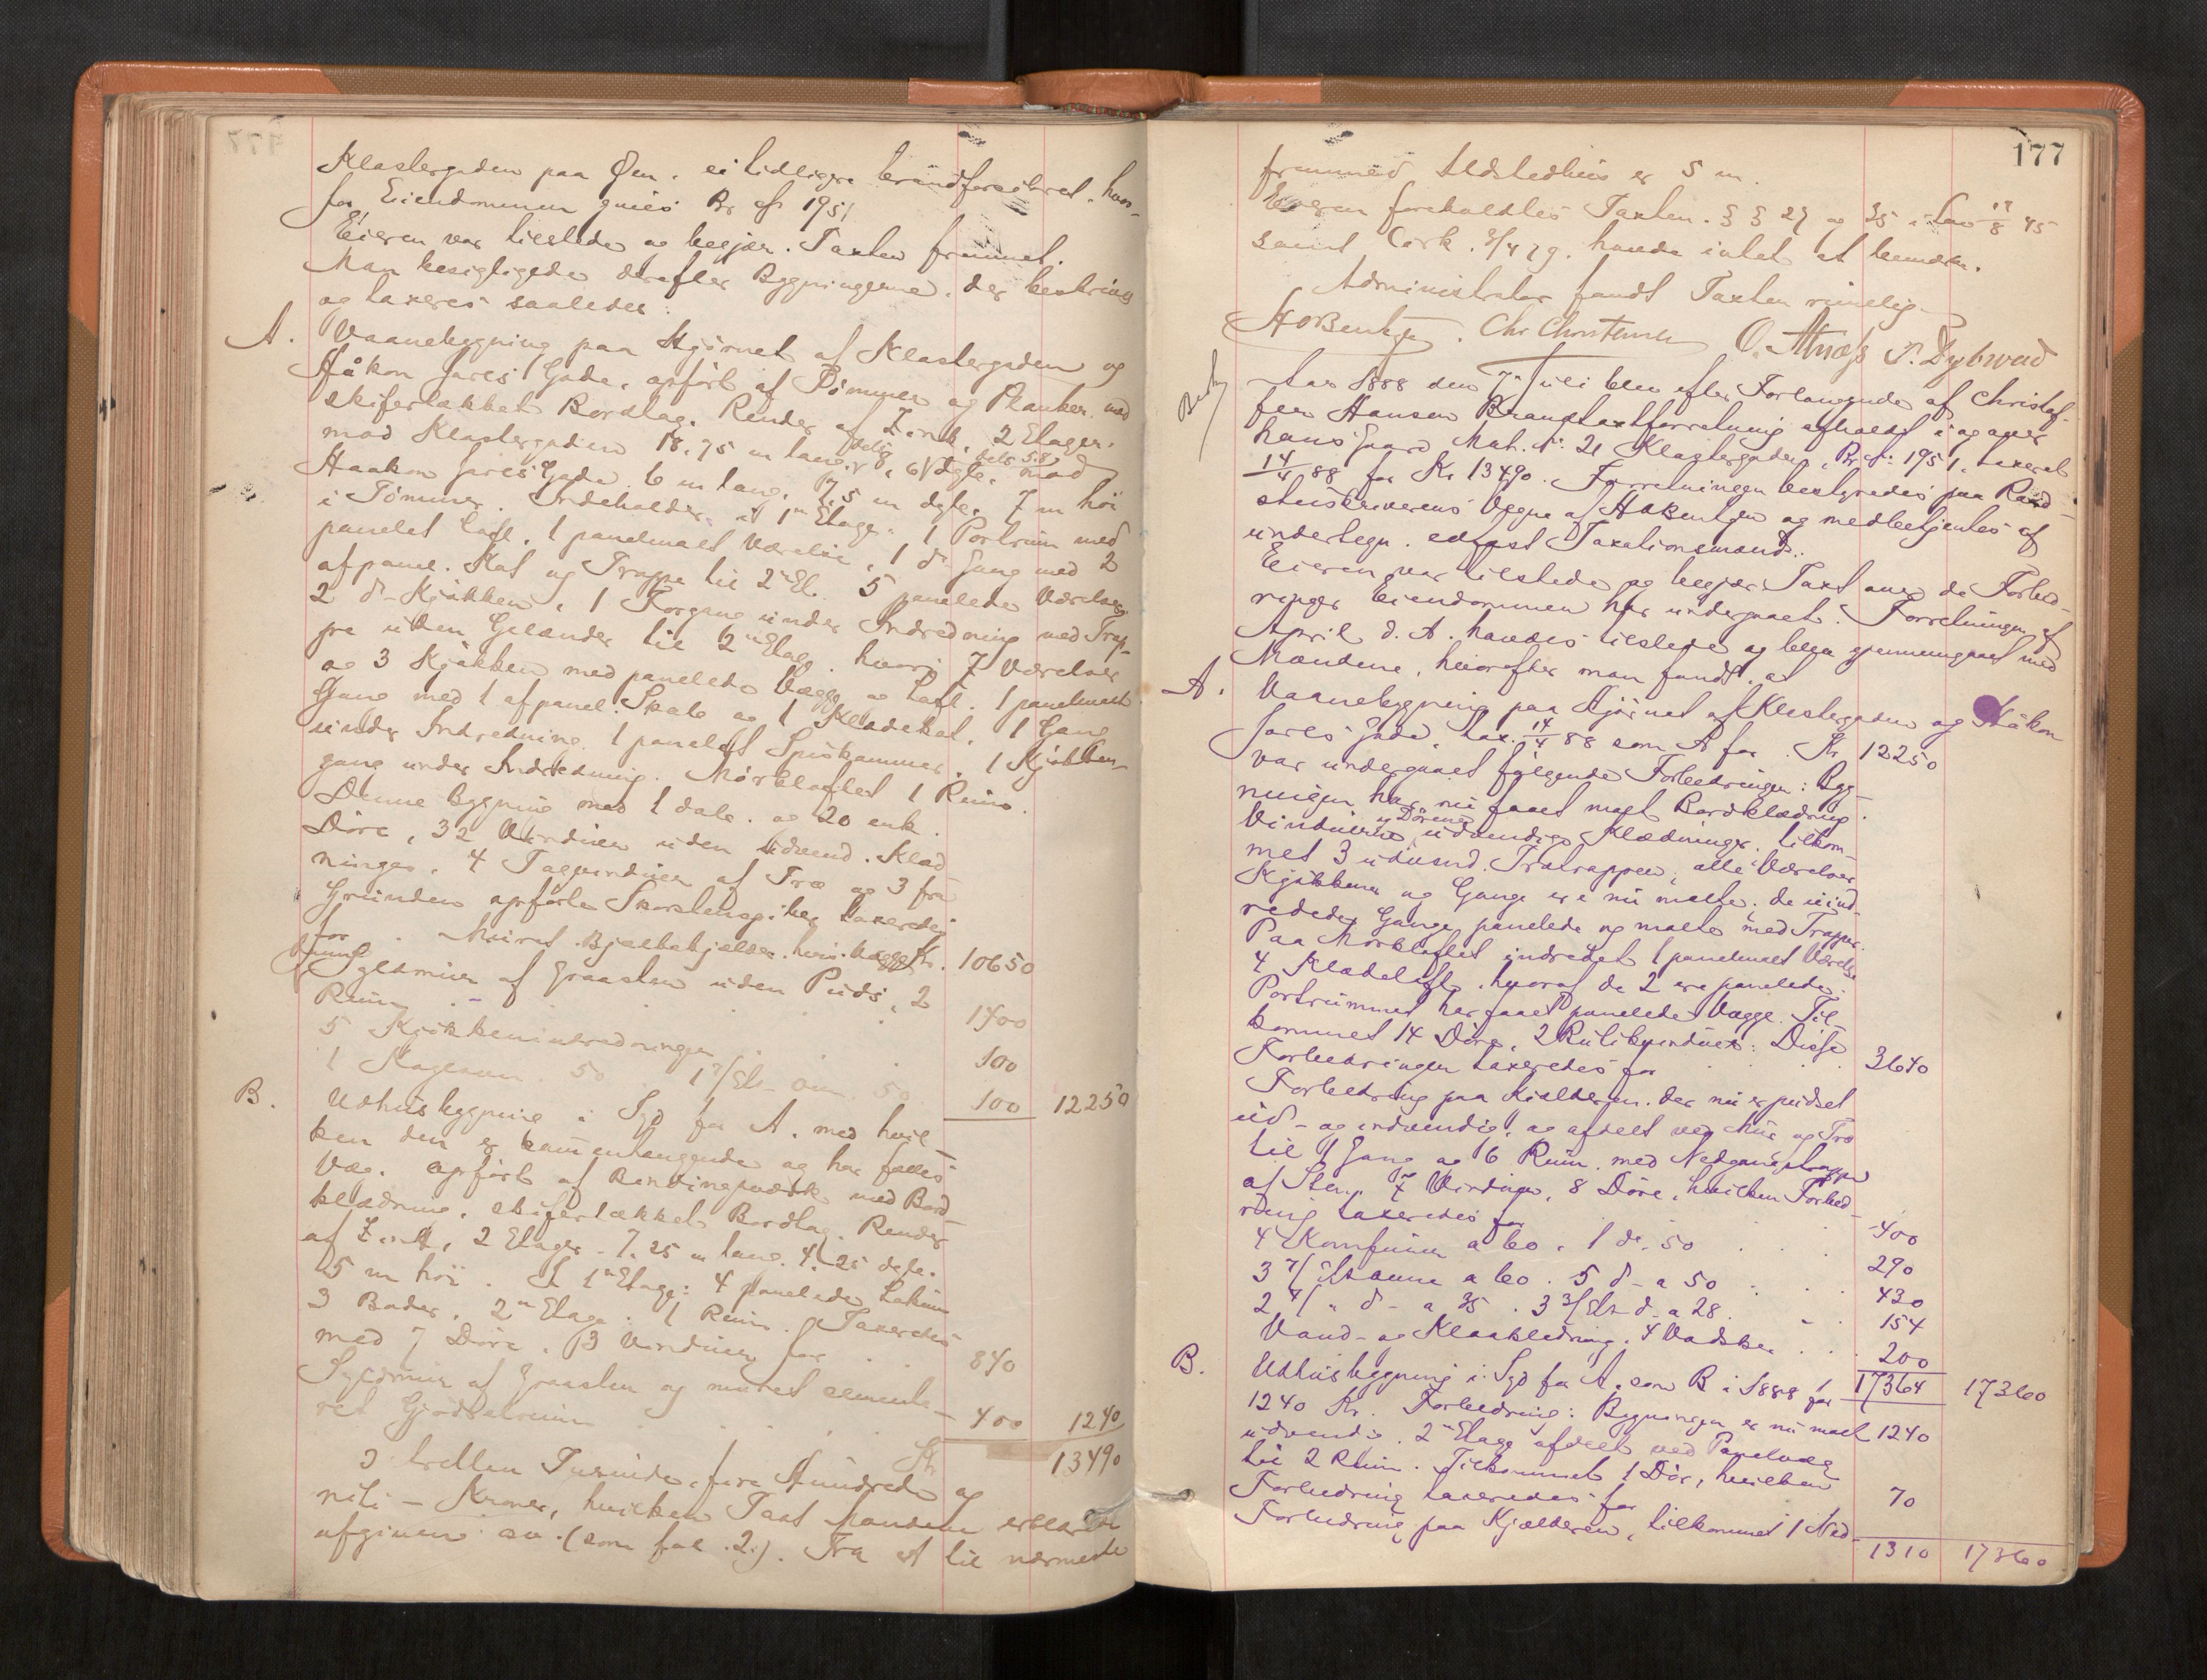 Klostergaden paa Øen. ei tidligere brandforsikret. hvor-
for Eiendommen gives Br. No 1951
Eieren var tilstede og begjær. Taxten fremmet.
Man besigtigede derefter Bygningerne. der beskrives
og taxeres saaledes:
A. Vaanebygning paa Hjørnet af Klostergaden og
Håkon Jarls Gade, opført af Tømmer og Planker. med
skifertækket Bordtag. Render af Zink, 2 Etager.
mod Klostergaden 18.75 m lang. 6 dybe, mod
Haakon Jarls Gade 6 m lang. 7.5 m dybe, 7 m høi
i Tømmer. Indeholder i 1n Etage: 1 Portrum med
panelet Loft, 1 panelmalt Værelse, 1 do Gang med 2
afpanel. Kat og Trappe til 2n Et. 5 panelede Værelser
2 do Kjøkken, 1 Forgang under Indredning med Trap-
pe uden Gelænder til 2n Etage. hvori 7 Værelser
og 3 Kjøkken med panelede Vægge og Loft. 1 panelmalt
Gang med 1 afpanel. Skab og 1 Klædekot, 1 Gang
under Indredning 1 panelet Spiskammer, 1 Kjøkken-
gang under Indredning. Mørkloftet 1 Rum.
Denne Bygning med 1 dobb. og 20 enk.
Døre, 32 Vinduer uden udvend. Klæd-
ninger, 4 Tagvinduer af Træ og 3 fra
Grunden opførte Skorstenspiber taxeredes
for . Muret Bjælkekjælder. hvis Vægge Kr. 10650
Syldmur af Graasten uden Puds, 2
Rum . . . . 1400
5 Kjøkkenindredninger . . 100
1 Kageovn 50 1 3/Et. Ovn 50 . 100 12250
B. Udhusbygning i Syd for A. med hvil-
ken den er sammenhængende og har fælles
Væg. opført af Bindingsværk med Bord-
klædning, skifertækket Bordtag. Render
af Zink, 2 Etager. 7.25 m lang 4.25 dybe.
5 m høi. I 1n Etage: 4 panelede Lokum
3 Boder, 2n Etage: 1 Rum. Taxeredes
med 7 Døre, 3 Vinduer for . . 840
Syldmur af Graasten og muret cemente-
ret Gjødselrum . . . 400 1240
Kr. 13490
3 tretten Tusinde, fire Hundrede og
niti – Kroner, hvilken Taxt Mændene erklærer
afgiven ov. (som fol. 2.). Fra A til nærmeste
177
fremmed Ildstedhus er 5 m.
Eieren foreholdtes Taxten. §§ 27 og 35 i Lov 19/8 45
samt Cirk. 3/4 79. havde intet at bemærke.
Administrator fandt Taxten rimelig.
HOBentzen. Chr Christensen O. Alnæs P. Dybwad
Aar 1888 den 7n Juli blev efter Forlangende af Christof-
fer Hansen Brandtaxtforretning afholdt i og over
hans Gaard Mat. No: 21 Klostergaden, Br. No: 1951, taxeret
14/4 88 for Kr 13490. Forretningen bestyredes paa Raad-
stuskriverens Vegne af HOBentzen og medbetjentes af
undertegn. edfæst Taxationsmænd.
Eieren var tilstede og begjær. Taxt over de Forbed-
ringer Eiendommen har undergaaet. Forretningen af
April d. A. havdes tilstede og blev gjennemgaaet med
Mændene, hvorefter man fandt, at
A. Vaanebygning paa Hjørnet af Klostergaden og Håkon
Jarls Gade, tax. 14/4 88 som A for . Kr 12250
var undergaaet følgende Forbedringer: Byg-
ningen har nu faaet malt Bordklædning.
Vinduerne og Dørene udvendige Klædninger. tilkom-
met 3 udvend. Trætrapper, alle Værelser
Kjøkkener og Gange ere nu malte, de uind-
redede Gange panelede og malte med Trapper.
Paa Mørkloftet indredet 1 panelmalt Værelse
4 Klædelofte, hvoraf de 2 ere panelede.
Portrummet har faaet panelede Vægge. Til-
kommet 14 Døre, 2 Butikvinduer: Disse
Forbedringer taxeredes for . . . 3640
Forbedring paa Kjælderen. der nu er pudset
ud- og indvendig, og afdelt ved Mur og Træ
til 1 Gang og 6 Rum. med Nedgangstrappe
af Sten, 7 Vinduer, 8 Døre, hvilken Forbed-
ring taxeredes for . . . 400
4 Komfurer a 60, 1 do. 50 . . . 290
3 7/Et. Ovne a 60. 5 do a 50 . . . 430
2 4/ " do a 35. 3 3/Et. do a 28 . . . 154
Vand- og Kloakledning, 4 Vadsker . . . 200
17364 17360
B. Udhusbygning i Syd for A, som B i 1888 for
1240 Kr. Forbedring: Bygningen er nu malt 1240
udvendig. 2n Etage afdelt ved Panelvæg
til 2 Rum. Tilkommet 1 Dør, hvilken
Forbedring taxeredes for 70
Forbedring paa Kjælderen, tilkommet 1 Ned-
1310 17360